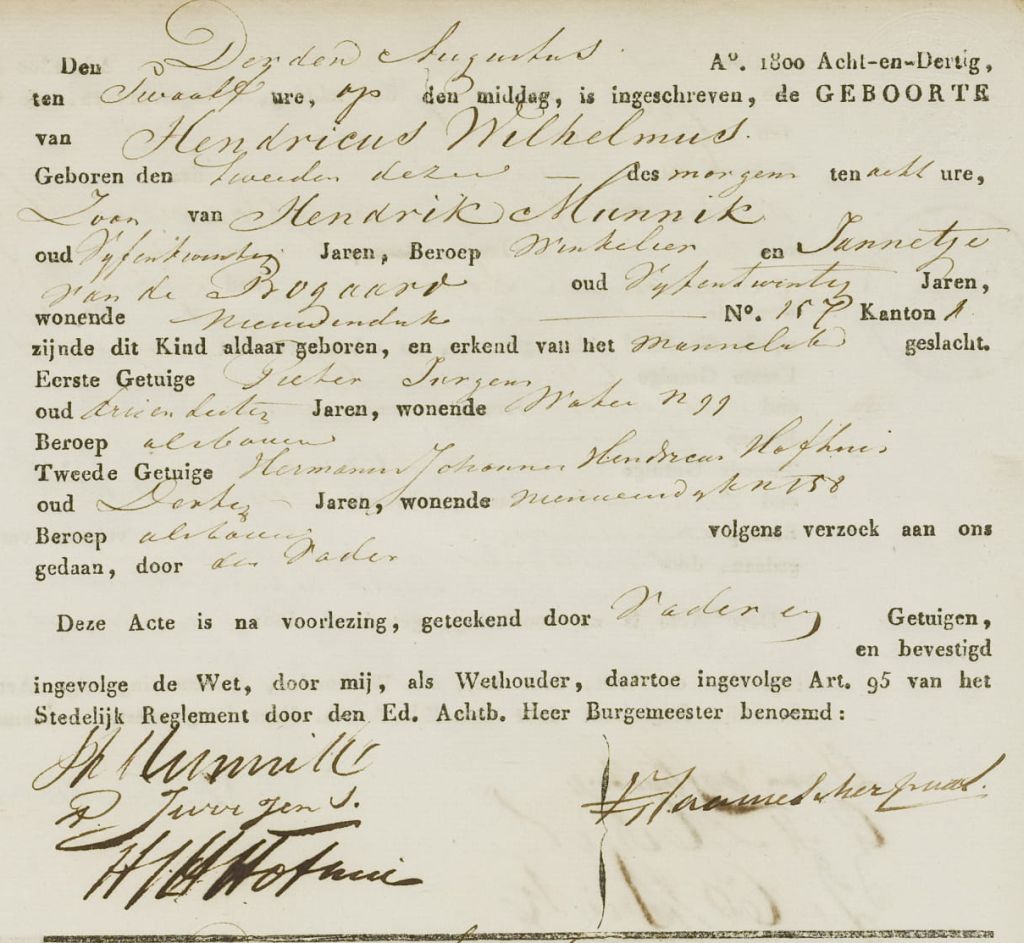 Den Derden Augustus A°. 1800 Acht-en-Dertig,
ten Twaalf ure, op den middag, is ingeschreven, de GEBOORTE
van Hendricus Wilhelmus.
Geboren den tweeden dezer — des morgens ten acht ure,
Zoon van Hendrik Munnik
oud Vyfentwintig Jaren, Beroep Winkelier en Jannetje
van de Bogaard oud Vyfentwintig Jaren,
wonende Nieuwendijk — N°. 157 Kanton 1
zijnde dit Kind aldaar geboren, en erkend van het mannelijk geslacht.
Eerste Getuige Pieter Jurgens
oud drieendertig Jaren, wonende Water N 99
Beroep als boven
Tweede Getuige Hermanus Johannes Hendricus Hofhuis
oud Dertig Jaren, wonende Nieuwendyk N 158
Beroep als boven volgens verzoek aan ons
gedaan, door den Vader
Deze Acte is na voorlezing, geteekend door Vader en Getuigen,
en bevestigd
ingevolge de Wet, door mij, als Wethouder, daartoe ingevolge Art. 95 van het
Stedelijk Reglement door den Ed. Achtb. Heer Burgemeester benoemd:
Munnik
P. Jurrgens.
HJH Hofhuis